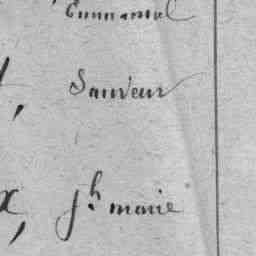 Emmanuel
Sauveur
x, Jh marie